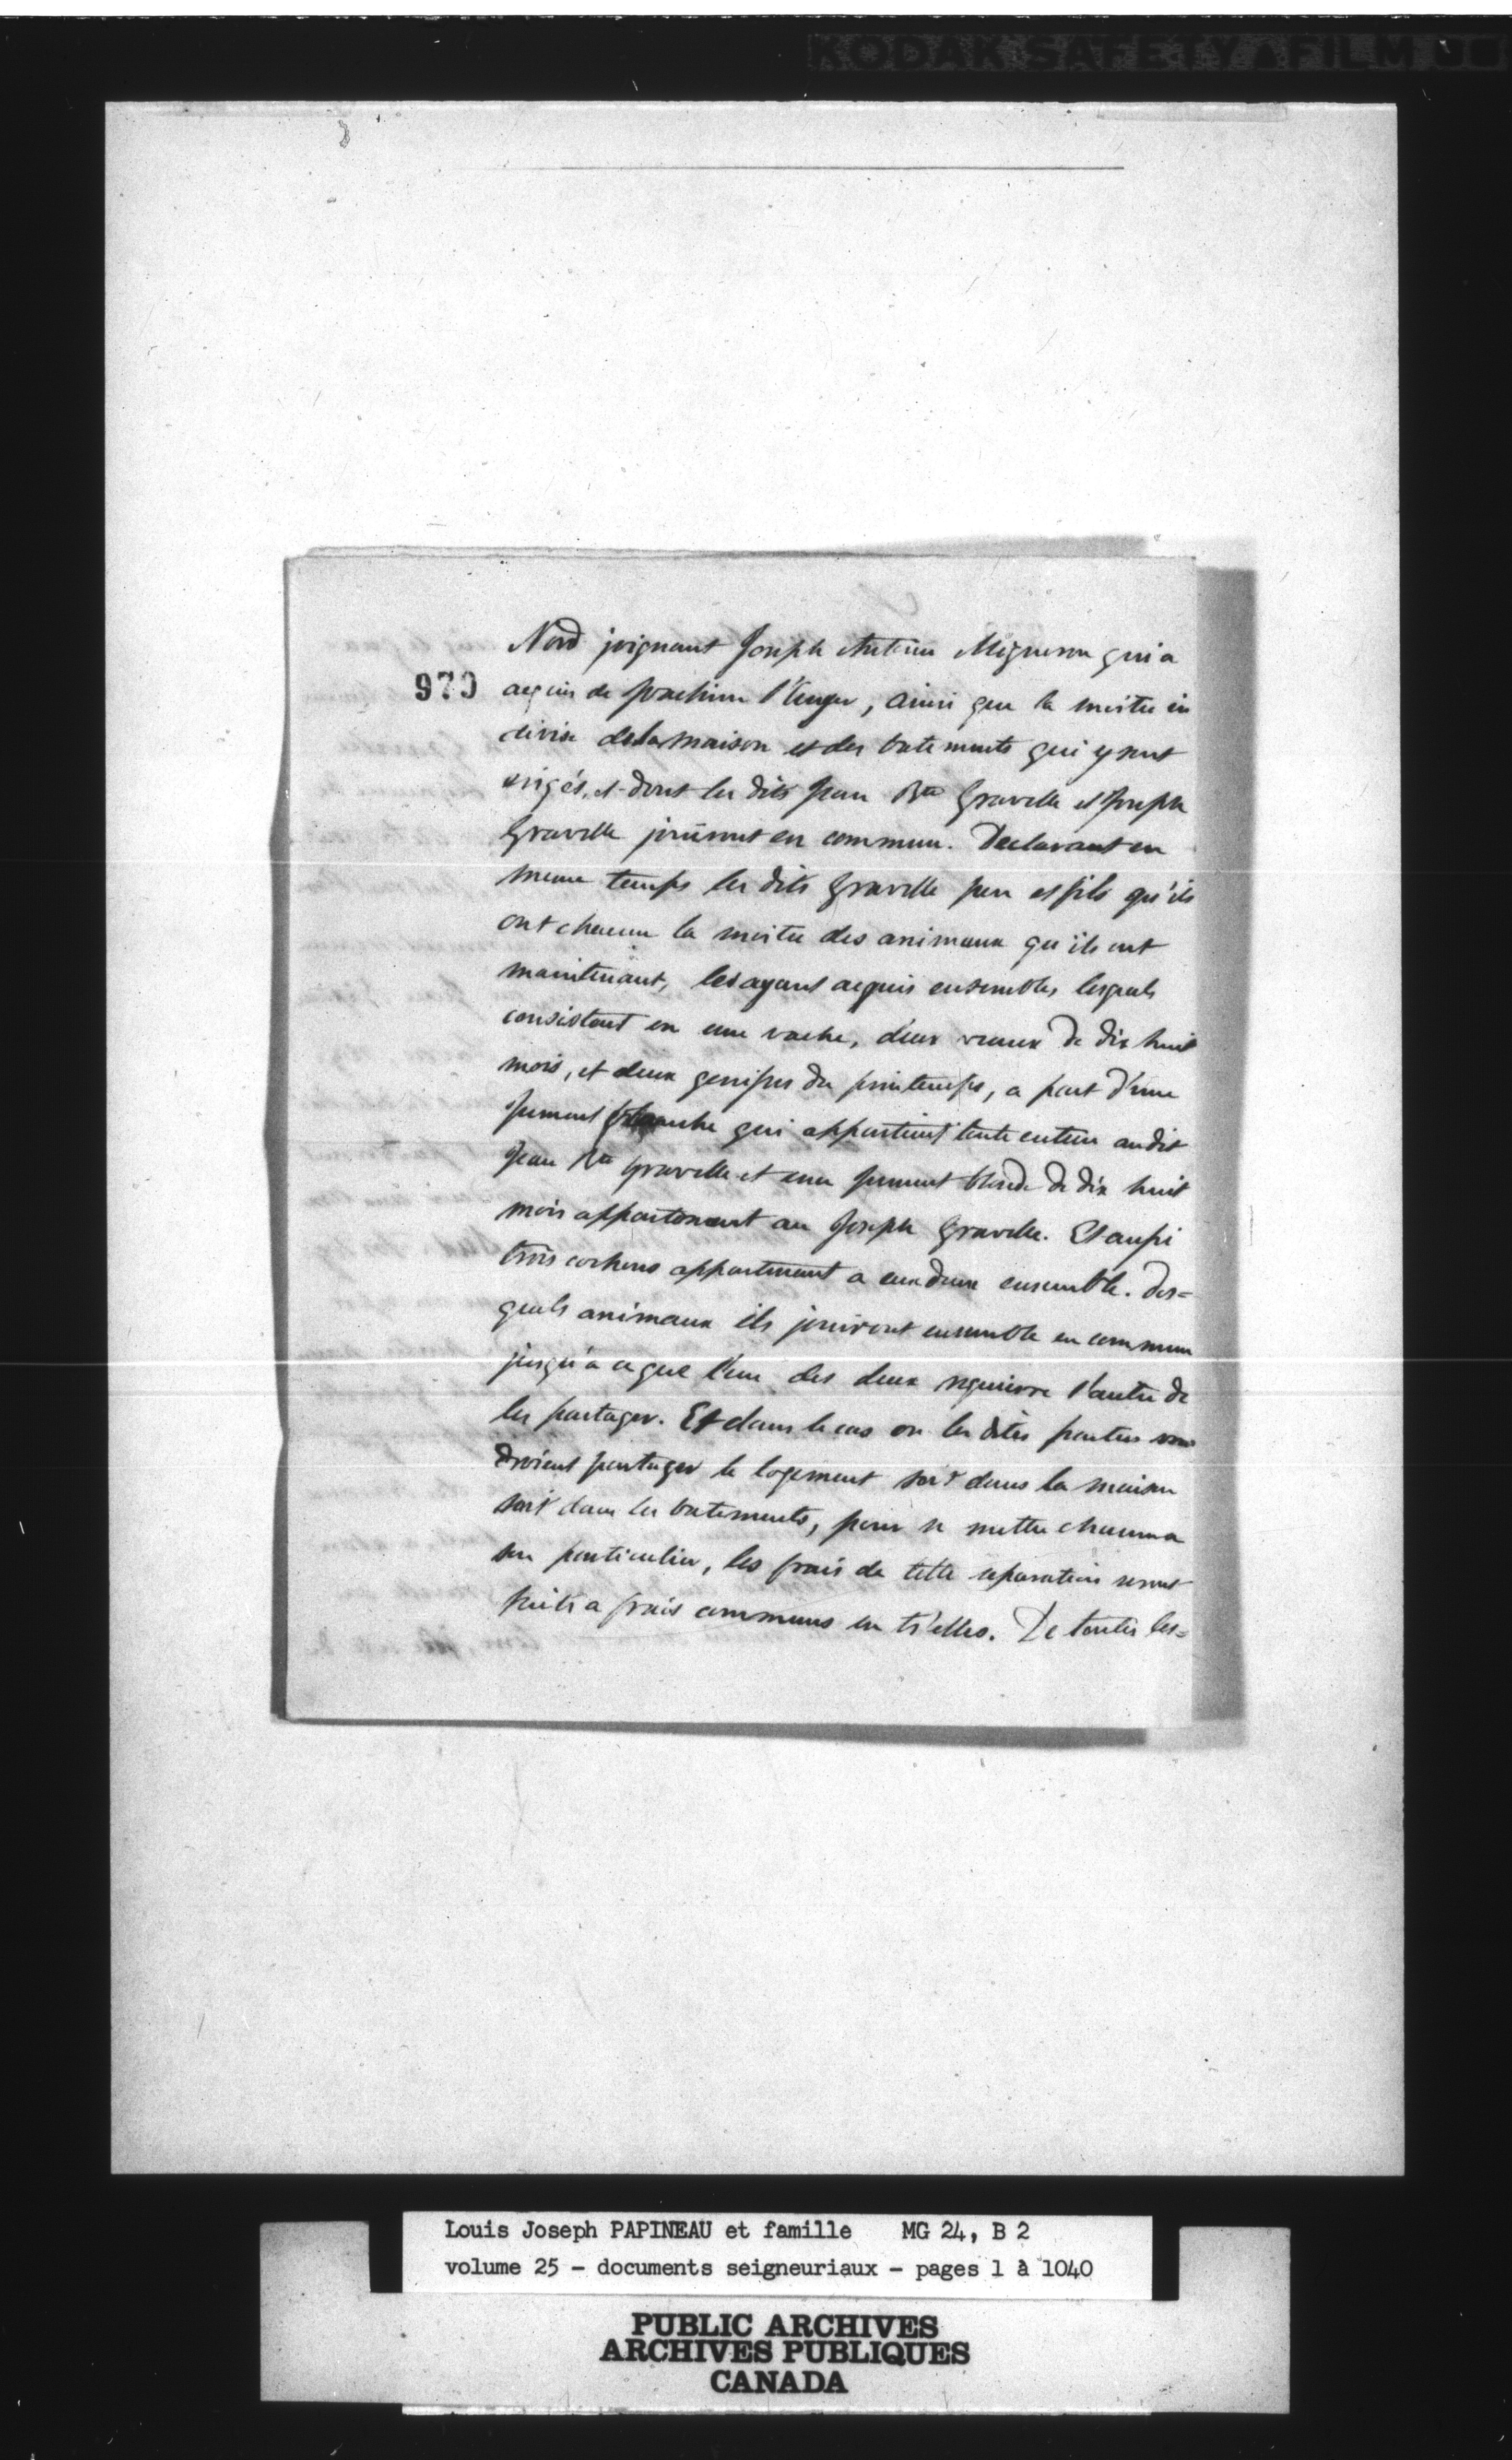 KODAK SAFETY FILM
979
Nord joignant Joseph Antoine Migneron qui a
acquis de Joachim l'Euger, ainsi que la moitié in
divise de la maison et des batements qui y sont
erigés, et dont les dits Jean Bte Gravelle et Joseph
Gravelle jouiront en commun. Declarant en
meme temps les dits Gravelle pere et fils qu'ils
ont chacun la moitié des animaux qu'ils ont
maintenant, les ayant acquis ensembles lesquels
consistent en une vache, deux veaux de dix huit
mois, et deux genisses du printemps, a part d'une
Jument blanche qui appartient toute entiere audit
Jean Bte Gravelle et une jument blonde de dix huit
mois appartenant au Joseph Gravelle. Et aussi
trois cochons appartenant a eux deux ensemble. Des=
quels animaux ils jouiront ensemble en commun
jusqu'a ce que l'un des deux requierre l'autre de
les partager. Et dans le cas ou les dites parties vou
droient partager le logement soit dans la maison
soit dans les batements, pour se mettre chacun a
son particulier, les frais de cette separation seront
faits a frais communs entr'elles. De toutes les=
Louis Joseph PAPINEAU et famille MG 24, B 2
volume 25 - documents seigneuriaux - pages 1 à 1040
PUBLIC ARCHIVES
ARCHIVES PUBLIQUES
CANADA